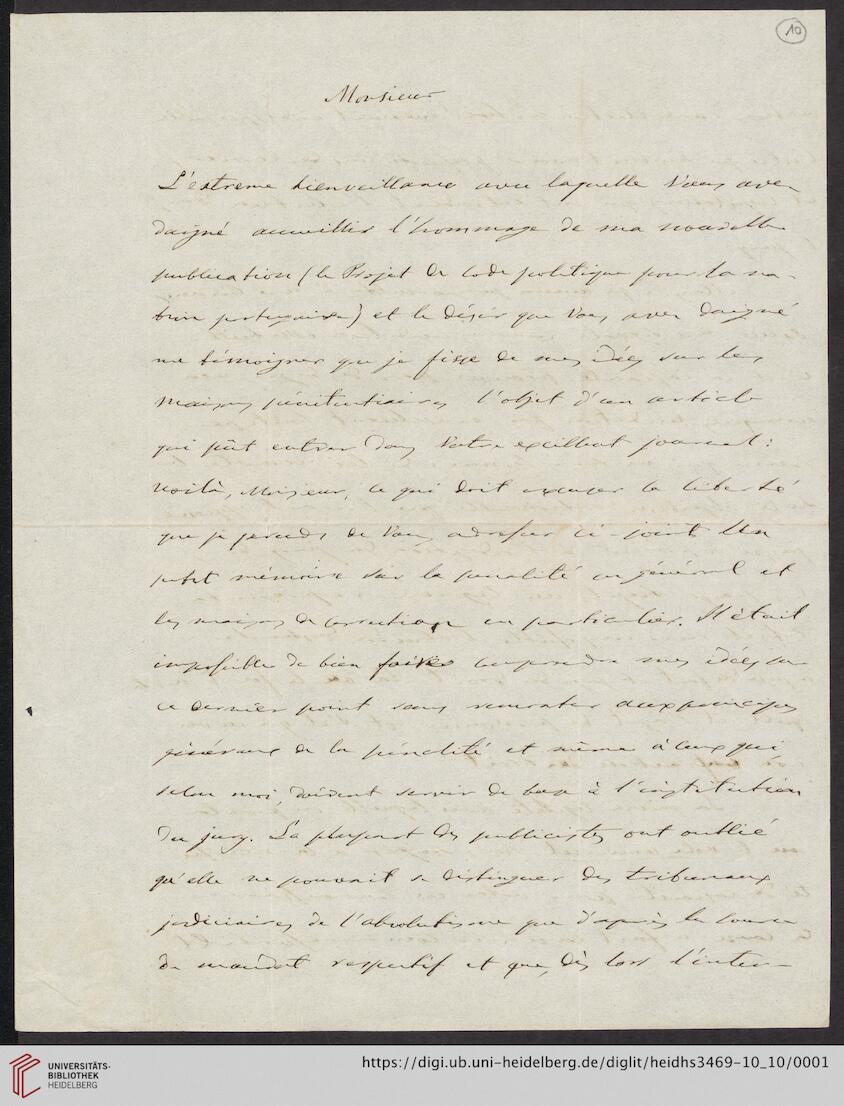 10
Monsieur
L'extreme bienveillance avec laquelle Vous avez
daigné accueillir l'hommage de ma nouvelle
publication (le Projet de Code politique pour la na-
tion portugaise) et le désir que Vous avez daigné
me témoigner que je fisse de mes idées sur les
maisons pénitentiaires l'objet d'un article
qui pût entrer dans Votre excellent journal:
voilà, Monsieur, ce qui doit excuser la liberté
que je prends de Vous adresser ci-joint Un
petit mémoire sur la pénalité en général et
les maisons de correction en particulier. Il était
impossible de bien faire comprendre mes idées sur
ce dernier point sans remonter aux principes
généraux de la pénalité et même à ceux qui
selon moi, doivent servir de base à l'institution
du jury. La plupart des publicistes ont oublié
qu'elle ne pouvait se distinguer des tribunaux
judiciaires de l'absolutisme que d'après la source
du mandat respectif et que, dès lors l'inter-
UNIVERSITÄTS-
BIBLIOTHEK
HEIDELBERG
https://digi.ub.uni-heidelberg.de/diglit/heidhs3469-10_10/0001